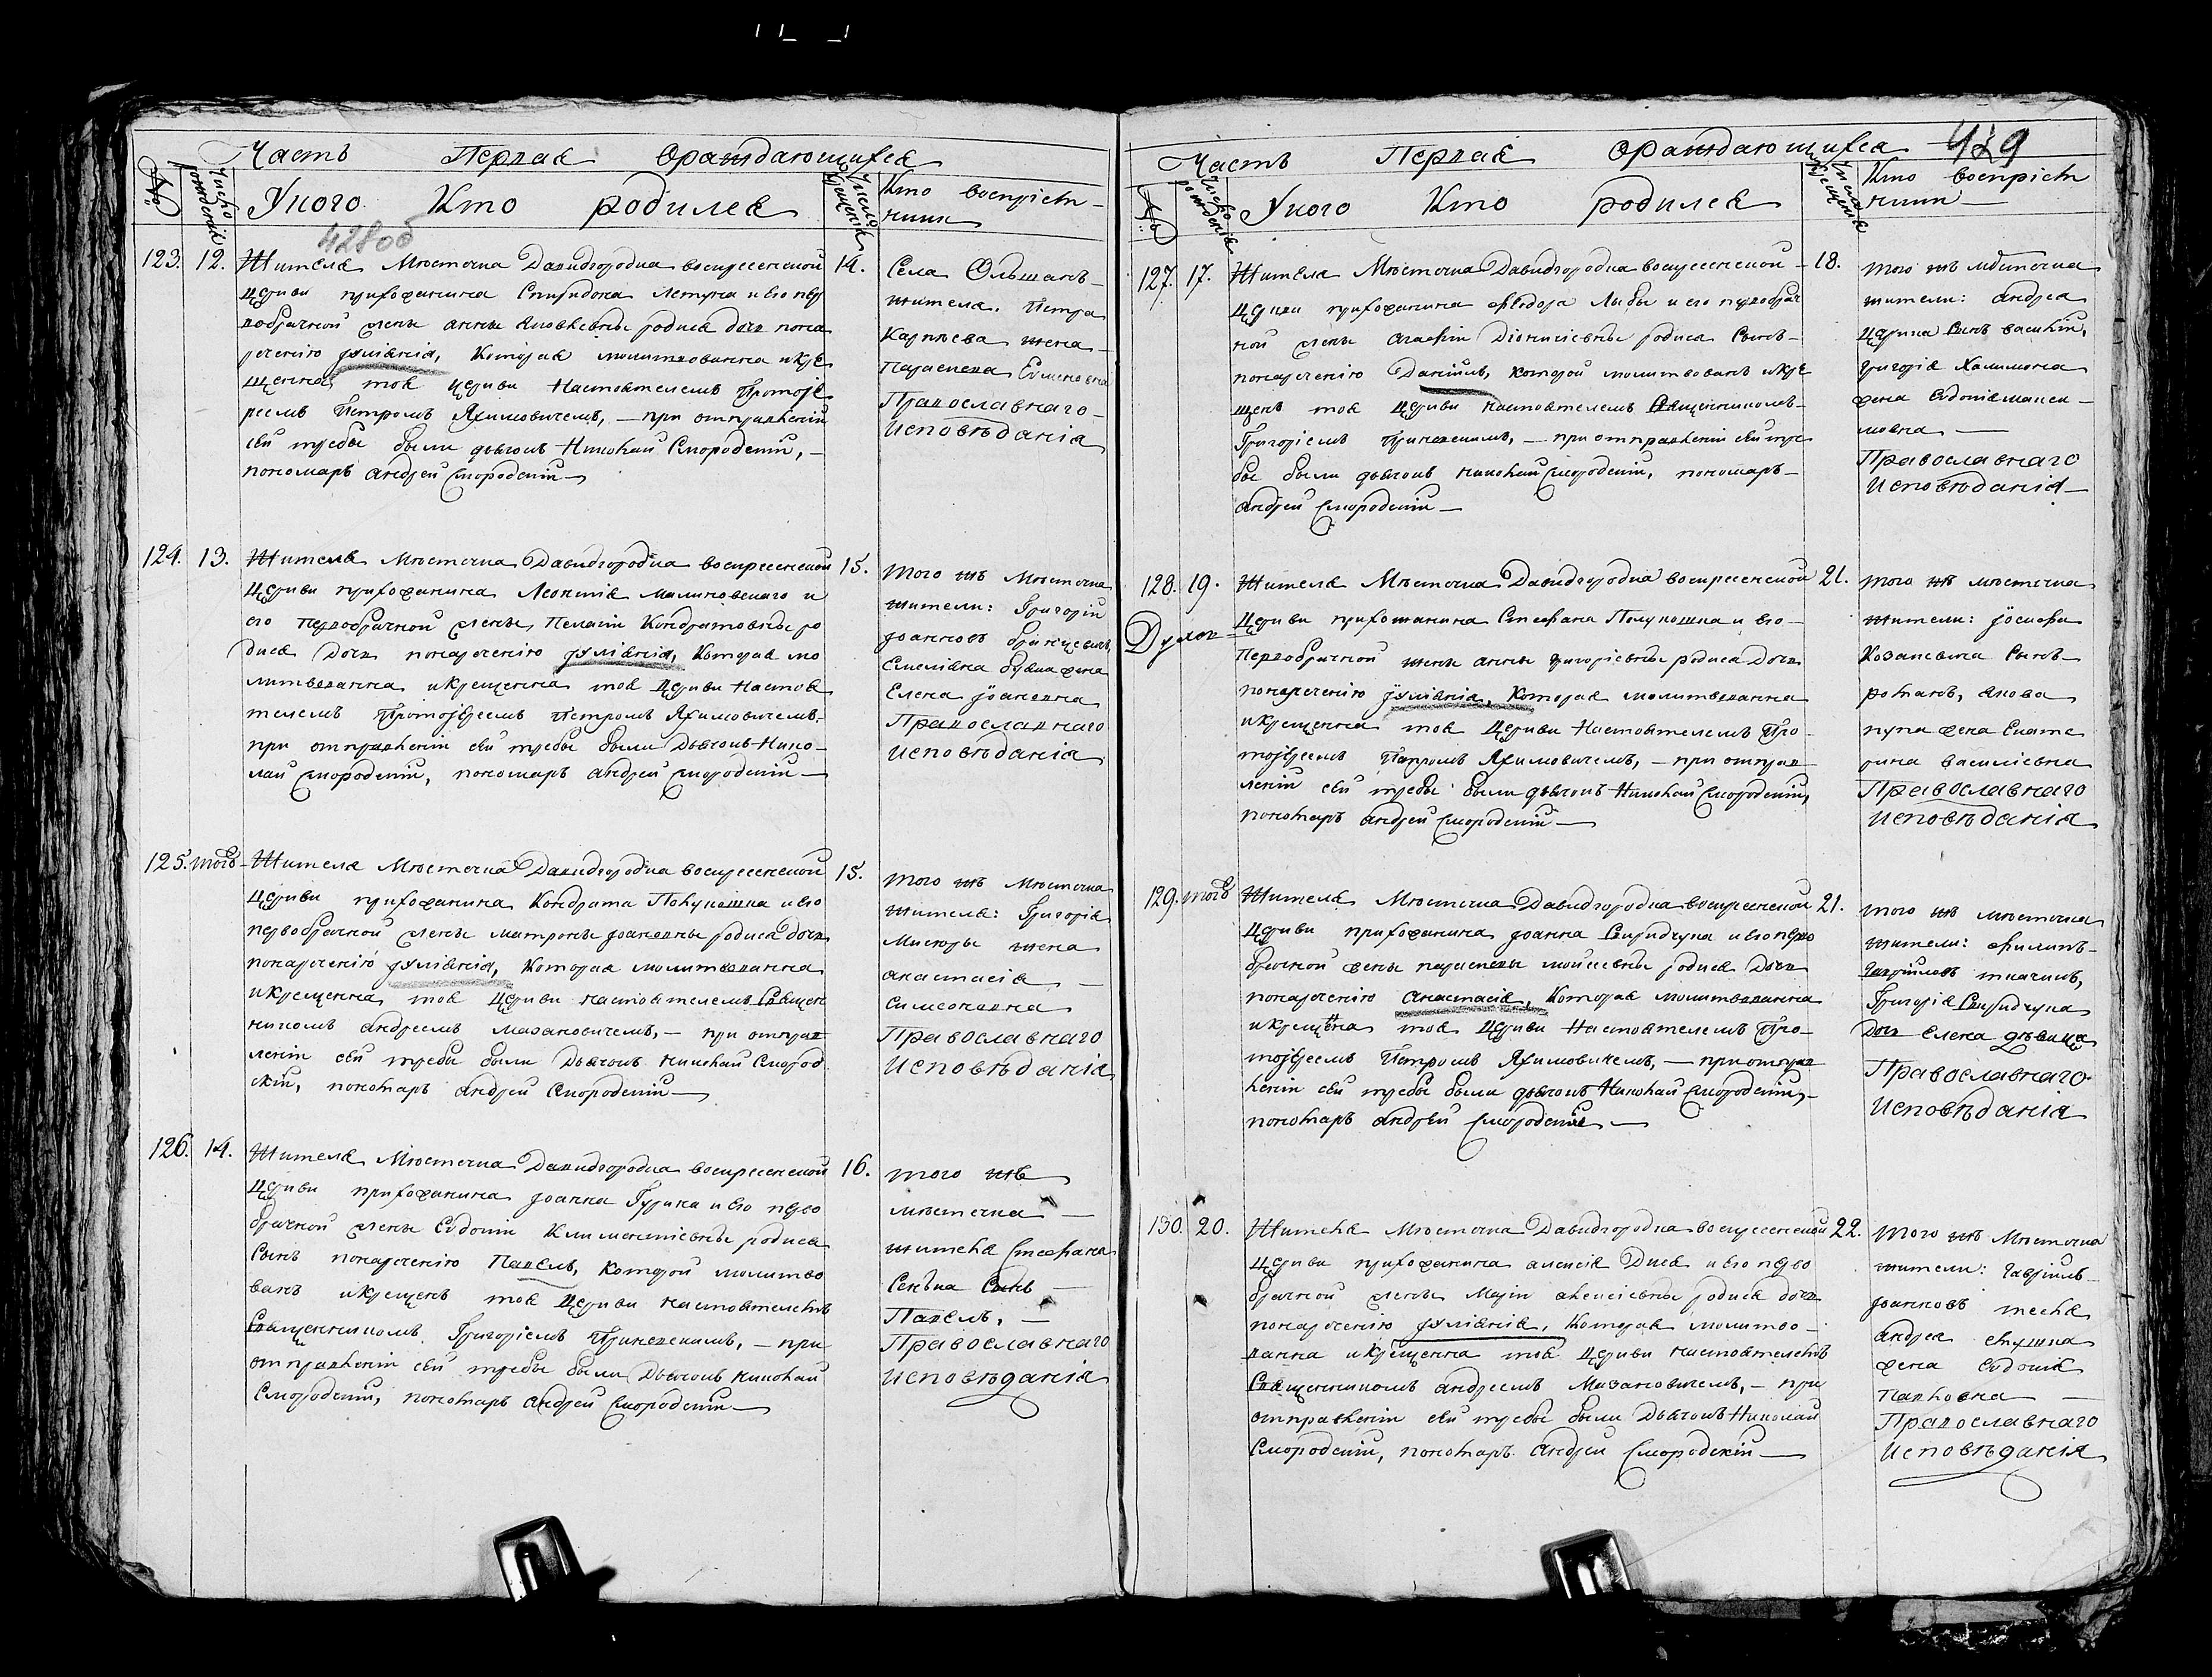 Часть Первая ораждающихся
№. Число рожденія У кого Кто родился Число крещенія Кто воспріем-
никъ
428об
123. 12. Жителя Мѣстечка Давидгородка воскресенской 14.
Церкви прихожанина Спиридона Летуна и его пер
вобрачной жены анны Яковлевны родися дочь пона
реченію Іуліанія, Которая молитвованна и кре
щенна тоя церкви Настоятелемъ Протоіе
реемъ Петромъ Яхимовичемъ, — при отправленіи
сей требы были дьячокъ Николай Смородскій, —
пономарь андрей Смородскій —
Села Ольшанъ-
жителя. Петра
Карпѣева жена
Параскева
Православнаго-
Исповѣданія
124. 13. Жителя Мѣстечка Давидгородка воскресенской 15.
Церкви прихожанина Леонтія Малиновскаго и
его Первобрачной жены, Пелагіи Кондратовны ро
дися Дочь понареченію Іуліанія, Которая мо
литвованна и Крещенна тоя Церкви Настоя
телемъ Протоіереемъ Петромъ Яхимовичемъ,
при отправленіи сей требы были Дьячокъ Нико-
лай Смородскій, пономарь андрей Смородскій —
того жъ Мѣстечка
жители: Григорій
Іоанновъ
Емеліяна жена
Елена Іоановна
Православнаго
Исповѣданія
125. тогожъ Жителя Мѣстечка Давидгородка воскресенской 15.
Церкви прихожанина Кондрата Полукошка и его
первобрачной жены матроны Іоановны родися дочь
понареченію Іуліанія, Которая молитвованна
и Крещенна тоя Церкви настоятелемъ Священ
никомъ андреемъ Мазановичемъ, — при отправ
леніи сей требы были Дьячокъ николай Смород
скій, пономарь андрей Смородскій —
того жъ Мѣстечка
жителя: Григорія
Мисюры жена
анастасія —
Симеоновна
Православнаго
Исповѣданія
126. 14. Жителя Мѣстечка Давидгородка воскресенской 16.
Церкви прихожанина Іоанна Гурина и его перво
брачной жены Евдокіи Климентіевны родися
Сынъ понареченію Павелъ, Которой молитво
ванъ и Крещенъ тоя Церкви настоятелемъ
Священникомъ Григоріемъ, — при
отправленіи сей требы были Дьячокъ николай
Смородскій, пономарь андрей Смородскій —
того жъ
мѣстечка —
жителя Стефана
Сынъ —
Павелъ, —
Православнаго
Исповѣданія
Часть Первая ораждающихся 429
№. Число рожденія У кого Кто родился Число крещенія Кто воспріем
никъ —
127. 17. Жителя Мѣстечка Давидгородка воскресенской — 18.
Церкви прихожанина Феодора Лыбы и его первобрач
ной жены Агафіи Діонисіевны родися Сынъ-
понареченію Даніилъ, которой молитвованъ и кре
щенъ тоя Церкви настоятелемъ Священникомъ-
Григоріемъ, — при отправленіи сей тре
бы были дьячокъ николай Смородскій, пономарь-
андрей Смородскій —
того жъ мѣстечка
жители: андрея
Цурика Сынъ василій,
Григорія Халимона
жена Евдокія
мовна —
Православнаго
Исповѣданія —
128. 19. Жителя Мѣстечка Давидгородка воскресенской 21.
Церкви прихожанина Стефана Полукошка и его-
Первобрачной жены анны григоріевны родися Дочь
понареченію Іуліанія, Которая молитвованна
и крещенна тоя Церкви Настоятелемъ Про-
тоіереемъ Петромъ Яхимовичемъ, — при отправ
леніи сей требы были дьячокъ Николай Смородскій,
пономарь андрей Смородскій —
того жъ мѣстечка
жители: Іосифа
Козакевича Сынъ-
романъ, Якова
пупа жена Екате
рина василіевна
Православнаго
Исповѣданія
129. тогожъ Жителя Мѣстечка Давидгородка воскресенской 21.
Церкви прихожанина Іоанна Свиридчука и его перво
брачной жены параскевы мойсеевны родися Дочь
понареченію анастасія, Которая молитвованна
и крещенна тоя Церкви Настоятелемъ Про-
тоіереемъ Петромъ Яхимовичемъ, — при отправ
леніи сей требы были дьячокъ Николай Смородскій, —
пономарь андрей Смородскій —
того жъ мѣстечка
жители: Филипъ-
Гавріиловъ ткачикъ,
Григорія Свиридчука
Дочь Елена дѣвица
Православнаго
Исповѣданія
130. 20. Жителя Мѣстечка Давидгородка воскресенской 22.
Церкви прихожанина алексія и его перво
брачной жены Маріи алексіевны родися дочь
понареченію Іуліанія, Которая молитво-
ванна и Крещенна тоя Церкви настоятелемъ
Священникомъ андреемъ Мазановичемъ, — при
отправленіи сей требы были Дьячокъ Николай
Смородскій, пономарь андрей Смородскій —
того жъ Мѣстечка
жители: Гавріилъ-
Іоанновъ
андрея
жена Евдокія
Павловна —
Православнаго
Исповѣданія